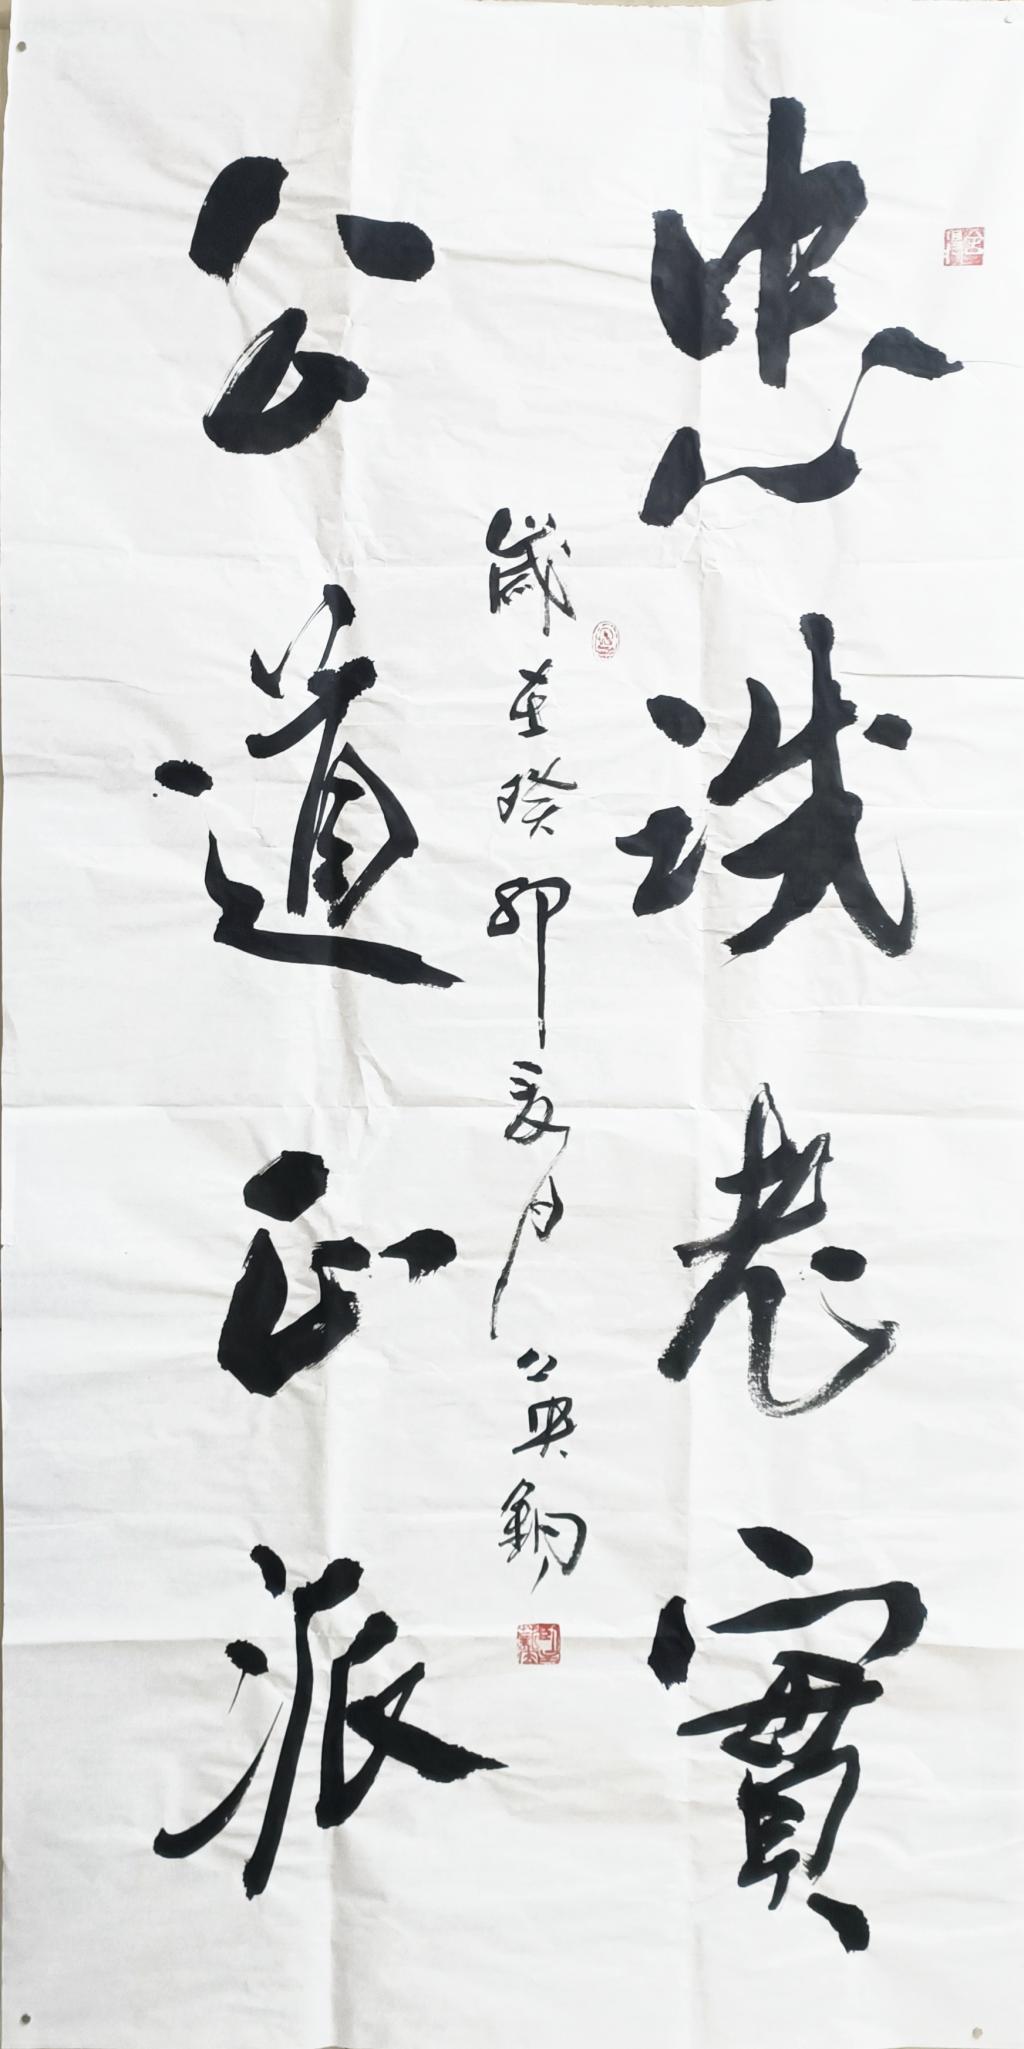 忠誠老實
歲在癸卯夏月
公道正派